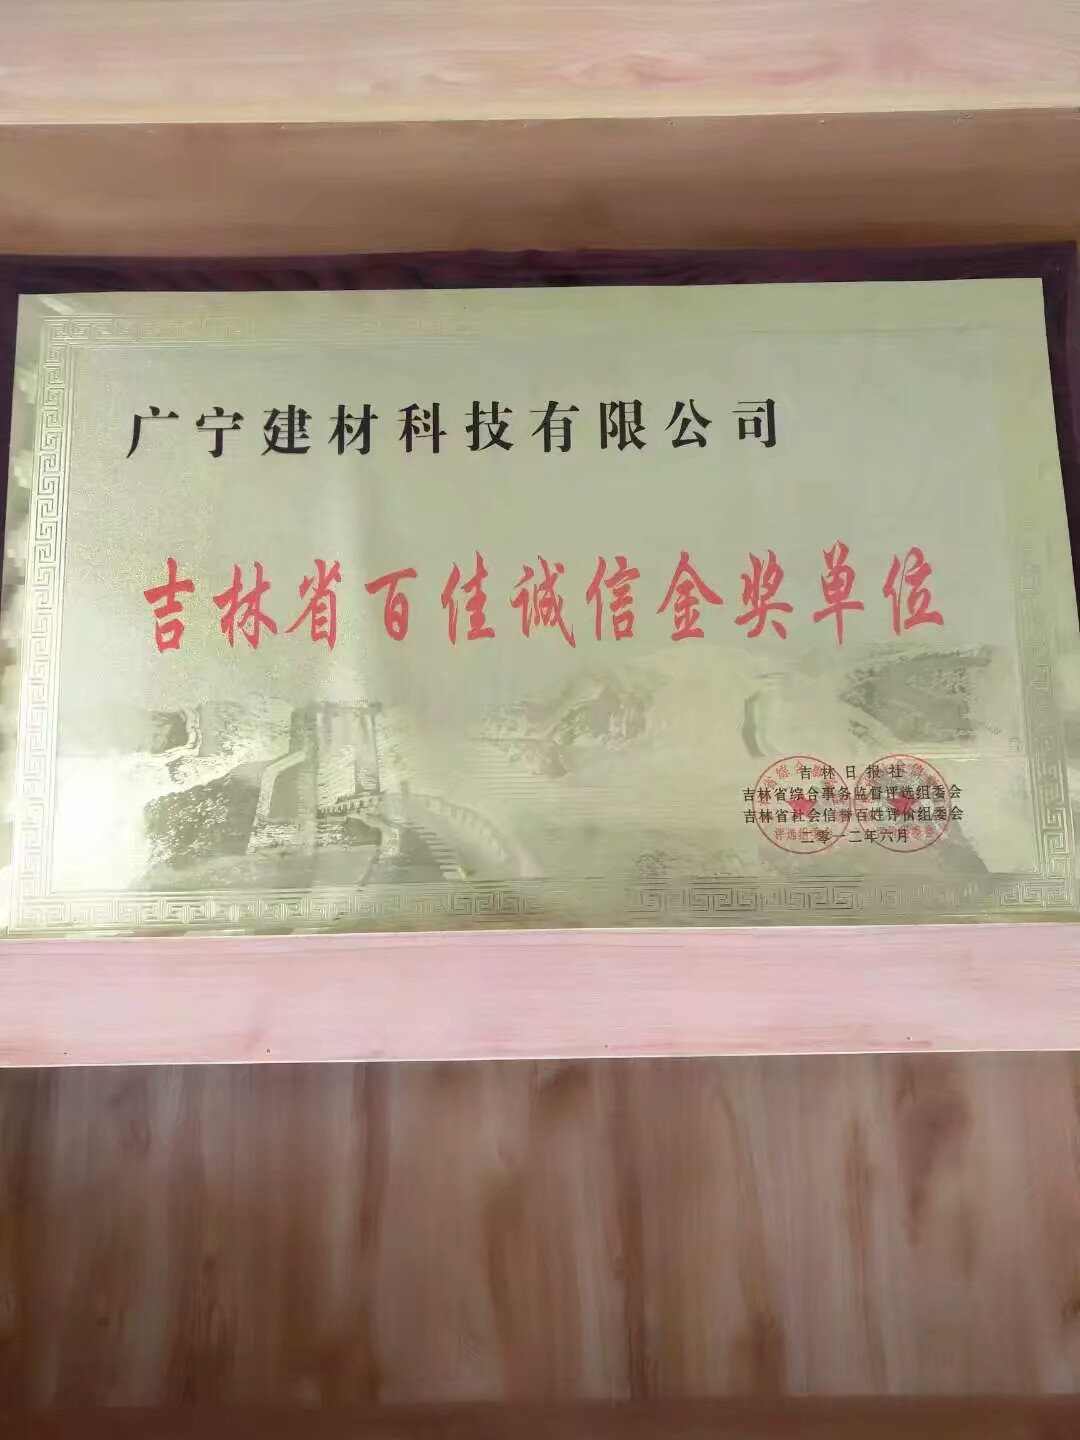 广宁建材科技有限公司
吉林省百佳诚信金奖单位
吉林日报社
吉林省综合事务监督评选组委会
吉林省社会信誉百姓评价组委会
二零一二年六月